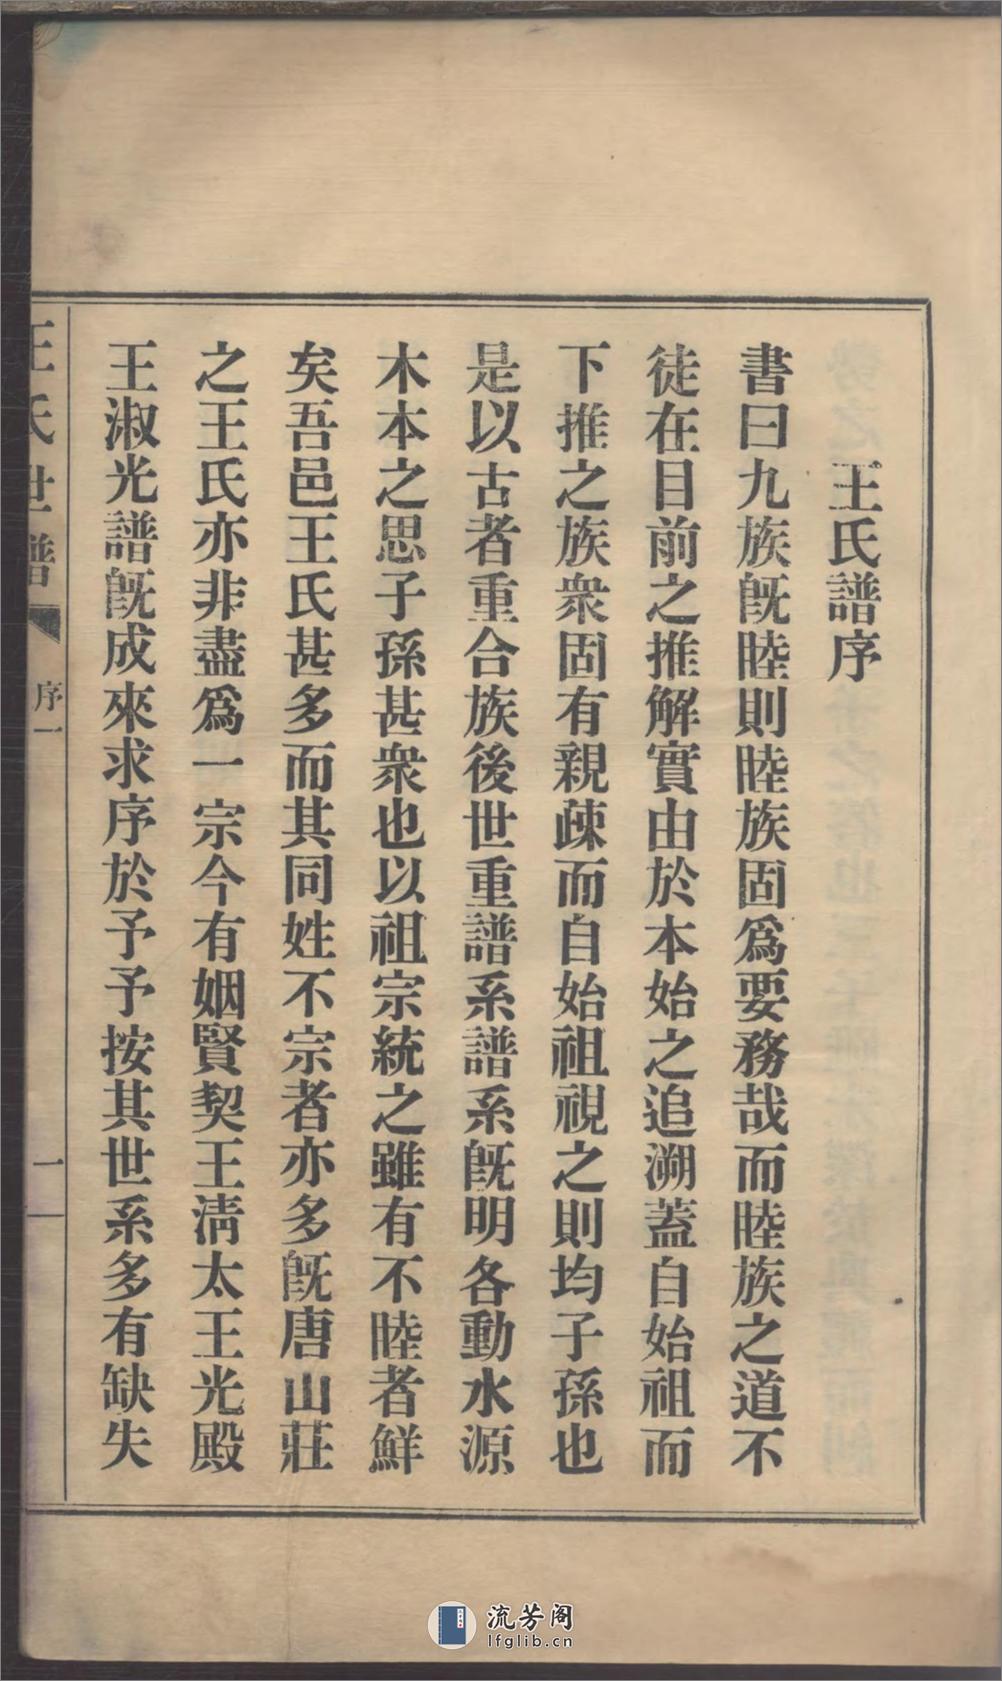 王氏譜序
書曰九族旣睦則睦族固爲要務哉而睦族之道不
徒在目前之推解實由於本始之追溯蓋自始祖而
下推之族衆固有親疎而自始祖視之則均子孫也
是以古者重合族後世重譜系譜系旣明各動水源
木本之思子孫甚衆也以祖宗統之雖有不睦者鮮
矣吾邑王氏甚多而其同姓不宗者亦多旣唐山莊
之王氏亦非盡爲一宗今有姻賢契王淸太王光殿
王淑光譜旣成來求序於予予按其世系多有缺失
王氏世譜 序一 一
流芳阁
lfglib.cn